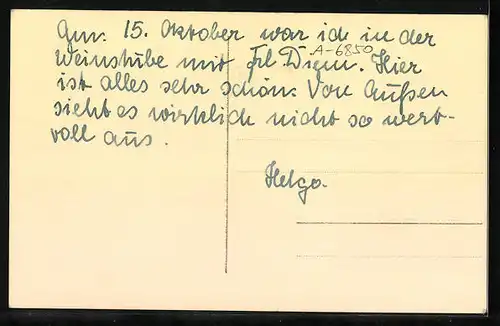 Am 15. Oktober war ich in der
A-6850
Weinstube mit Frl Diem. Hier
ist alles sehr schön. Von Außen
sieht es wirklich nicht so wert-
voll aus.
Helga.